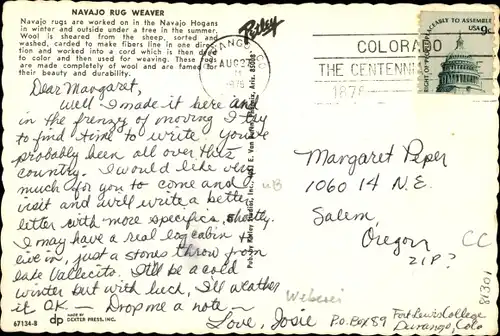 NAVAJO RUG WEAVER
Navajo rugs are worked on in the Navajo Hogans
in winter and outside under a tree in the summer.
Wool is sheared from the sheep, sorted and
washed, carded to make fibers line in one direc-
tion and worked into a cord which is then
to color and then used for weaving. These rugs
are made completely of wool and are famed for
their beauty and durability.
Dear Margaret,
Well I made it here and
in the frenzy of moving I try
to find time to write. You've
probably been all over this
country. I would like very
much for you to come and
visit and will write a better
letter with more specifics, shortly.
I may have a real log cabin to
live in, just a stones throw from
Lake Vallecito. It'll be a cold
winter but with luck, I'll weather
it OK — Drop me a note —
Love, Josie
P.O. Box 89
Fort Lewis College
Durango, Colo
81301
Petley
AUG 23
1976
COLORADO
THE CENTENNI
1876
PEACEABLY TO ASSEMBLE
USA 9c
Margaret Peper
1060 14 N.E.
Salem,
Oregon
ZIP?
CC
UB
67134-B
dp
MADE BY
DEXTER PRESS, INC.